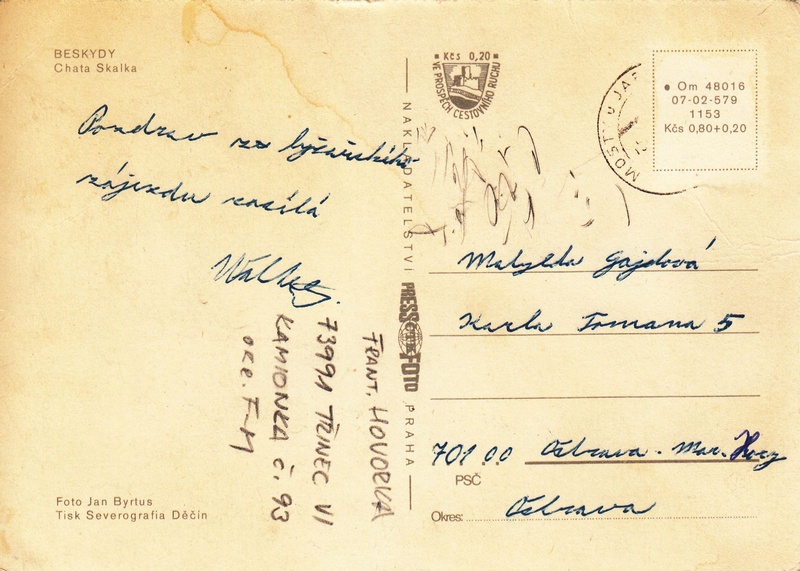 BESKYDY
Chata Skalka
Pozdrav ze lyžařského
zájezdu zasílá
FRANT. HOVORKA
73991 TŘINEC VI
KAMIONKA č. 93
okr. F-M
Foto Jan Byrtus
Tisk Severografia Děčín
NAKLADATELSTVÍ PRESSFOTO PRAHA
ČTK
Kčs 0,20
VE PROSPĚCH CESTOVNÍHO RUCHU
MOSTY U JA
Om 48016
07-02-579
1153
Kčs 0,80+0,20
Matylda Gajdová
Karla Tomana 5
701 00 Ostrava - Mar. Hory
PSČ
Okres: Ostrava